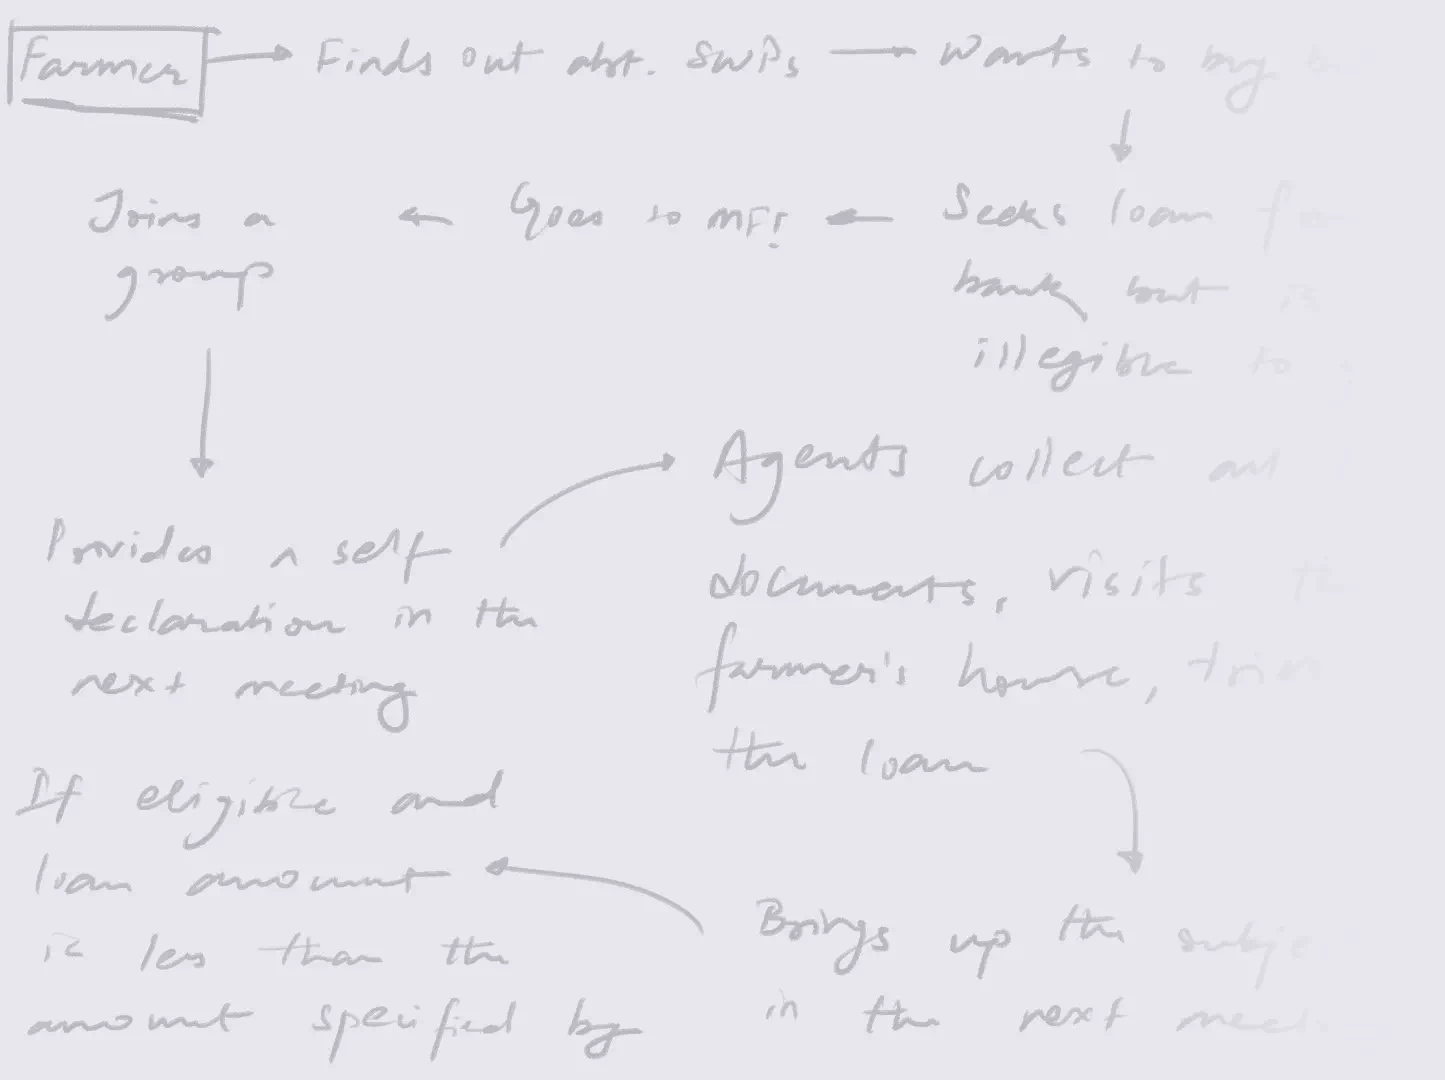 Farmer → Finds out abt. SWPs → Wants to buy
Seeks loan
bank but is
illegible to
← Goes to MFI ←
Joins a
group
Provides a self
declaration in the
next meeting
Agents collect
documents, visits the
farmer's house,
the loan
Brings up the
in the next
If eligible and
loan amount
is less than the
amount specified by